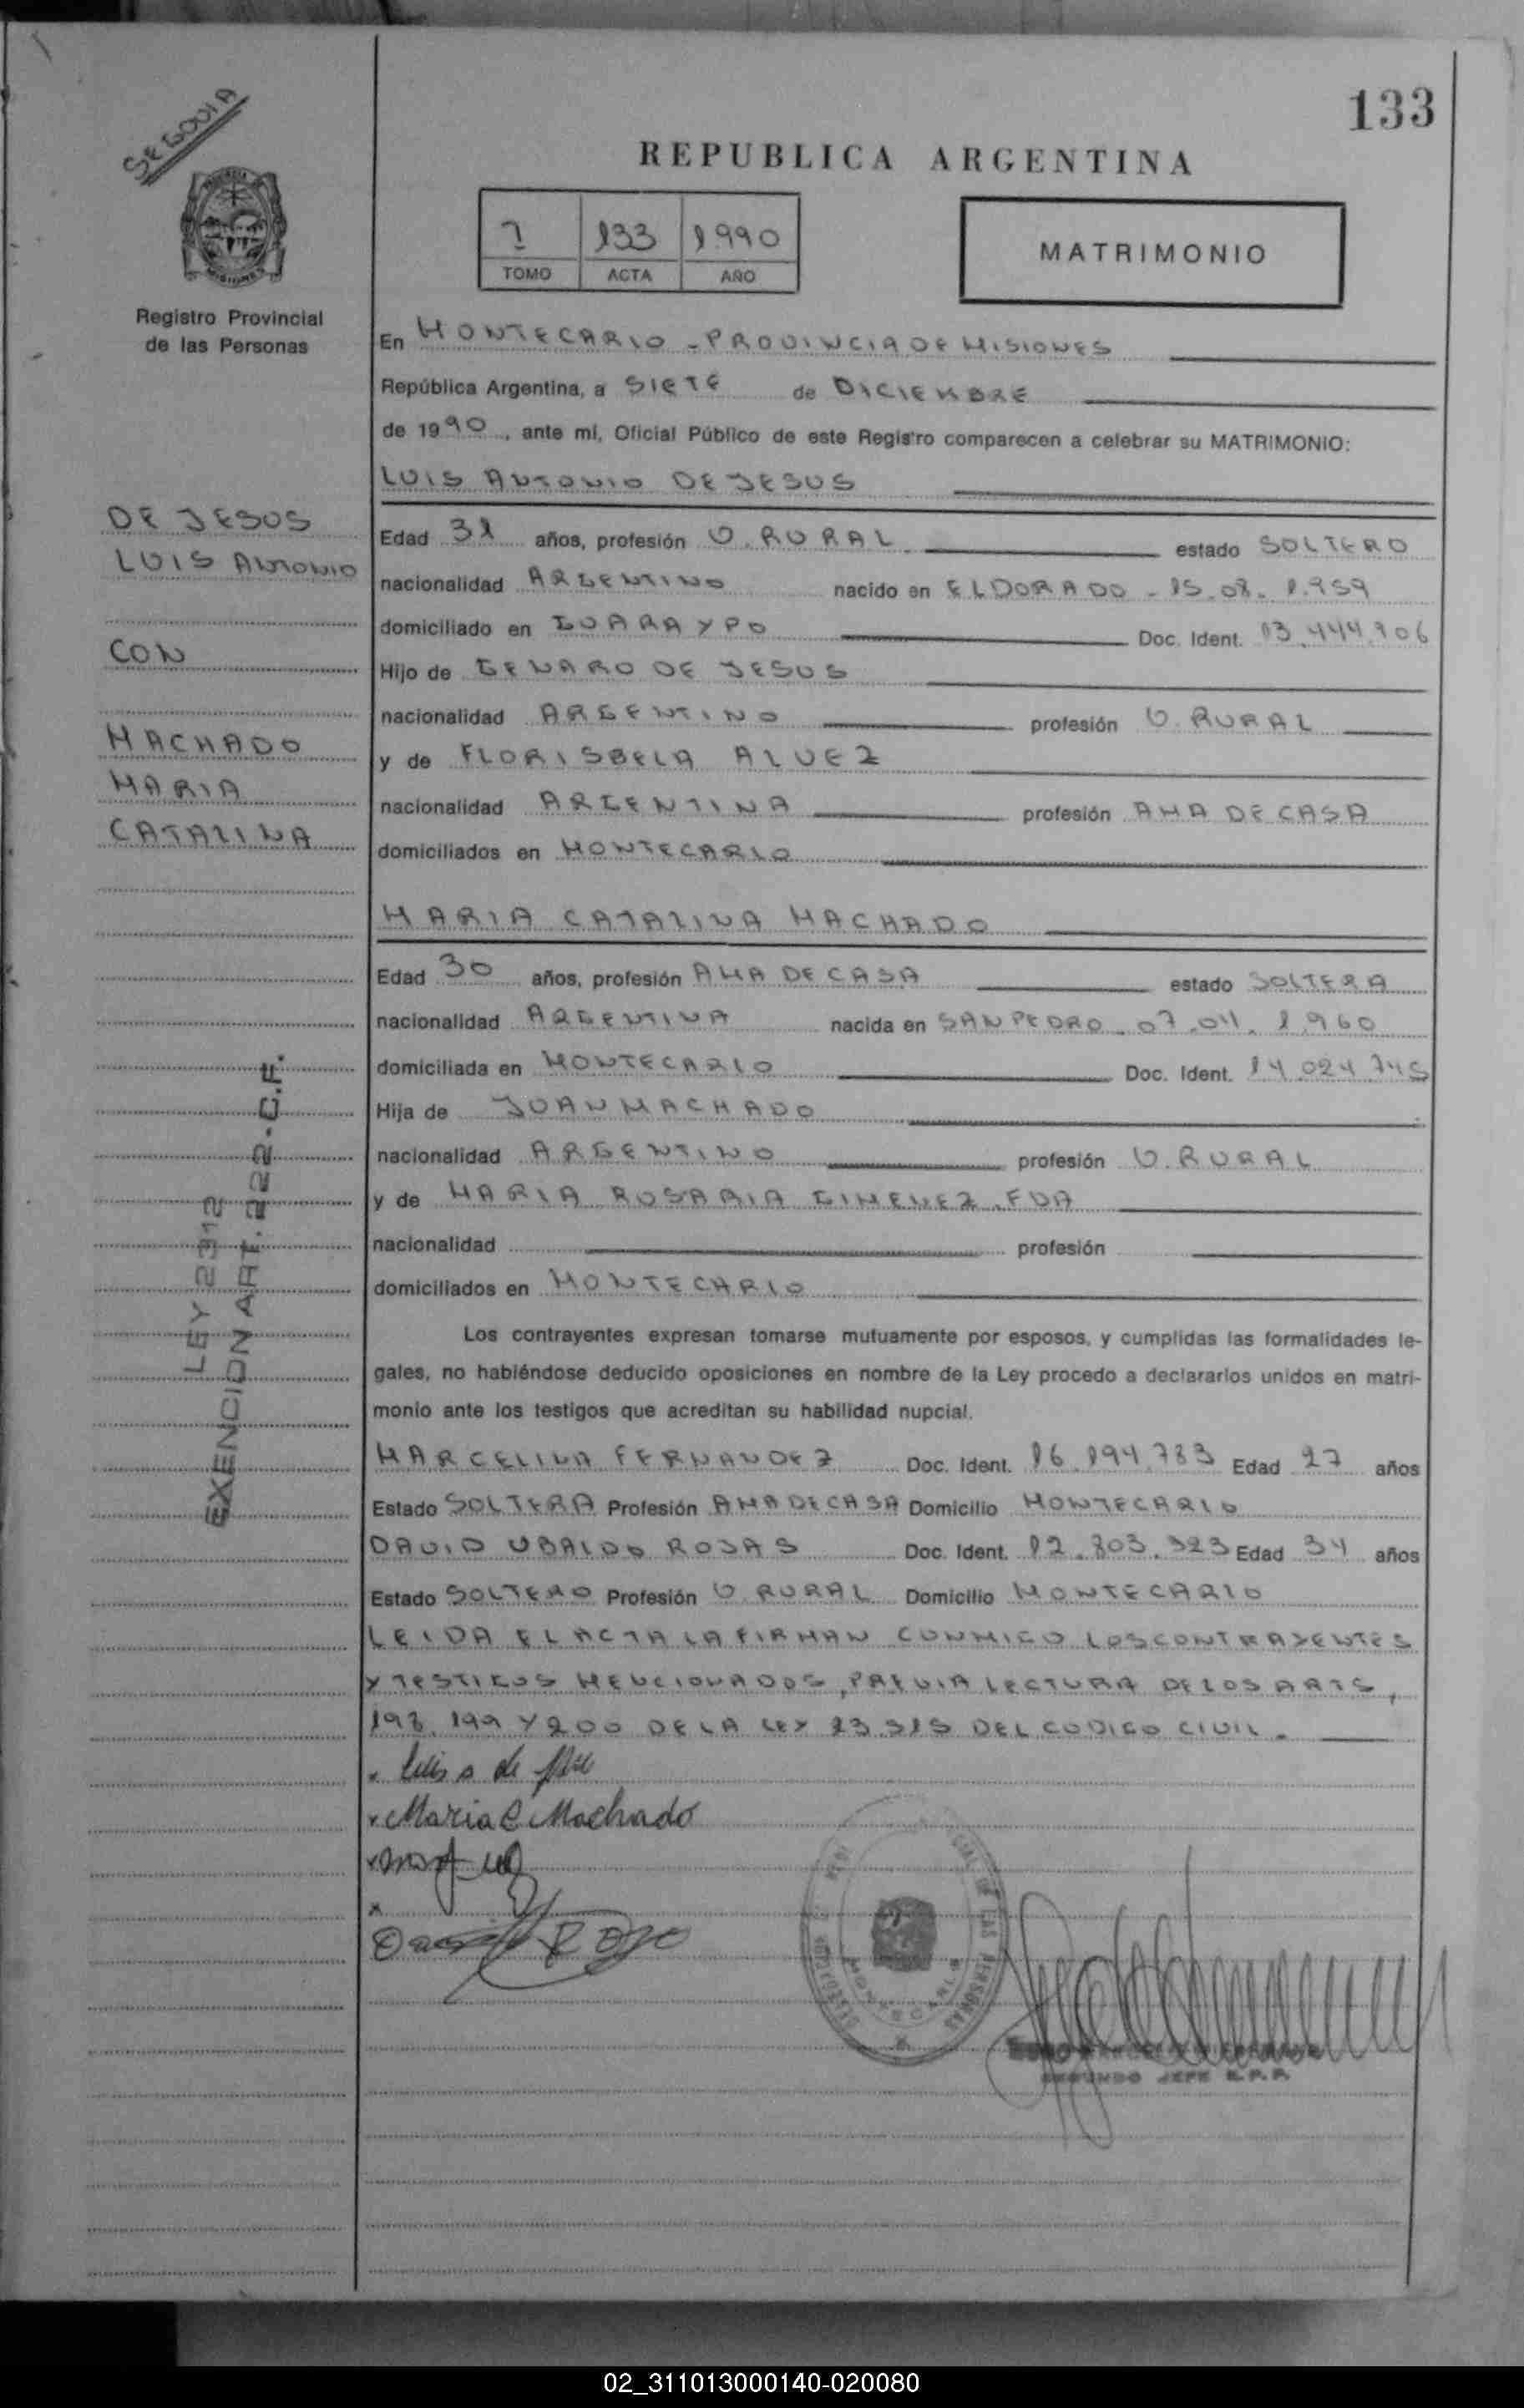 133
SEGOVIA
REPUBLICA ARGENTINA
1 133 1990
TOMO ACTA AÑO
MATRIMONIO
MISIONES
Registro Provincial
de las Personas
En MONTECARLO - PROVINCIA DE MISIONES
República Argentina, a SIETE de DICIEMBRE
de 1990, ante mí, Oficial Público de este Registro comparecen a celebrar su MATRIMONIO:
LUIS ANTONIO DE JESUS
DE JESUS
LUIS ANTONIO
CON
MACHADO
MARIA
CATALINA
LEY 2312
EXENCION ART. 222-C.F.
Edad 31 años, profesión O. RURAL estado SOLTERO
nacionalidad ARGENTINO nacido en ELDORADO - 15.08.1.959
domiciliado en GUARAYPO Doc. Ident. 13.444.906
Hijo de GENARO DE JESUS
nacionalidad ARGENTINO profesión O. RURAL
y de FLORISBELA ALVEZ
nacionalidad ARGENTINA profesión AMA DE CASA
domiciliados en MONTECARLO
MARIA CATALINA MACHADO
Edad 30 años, profesión AMA DE CASA estado SOLTERA
nacionalidad ARGENTINA nacida en SAN PEDRO - 07.04.1.960
domiciliada en MONTECARLO Doc. Ident. 14.024.745
Hija de JUAN MACHADO
nacionalidad ARGENTINO profesión O. RURAL
y de MARIA ROSARIA GIMENEZ. FDA
nacionalidad profesión
domiciliados en MONTECARLO
Los contrayentes expresan tomarse mutuamente por esposos, y cumplidas las formalidades le-
gales, no habiéndose deducido oposiciones en nombre de la Ley procedo a declararlos unidos en matri-
monio ante los testigos que acreditan su habilidad nupcial.
MARCELINA FERNANDEZ Doc. Ident. 16.194.783 Edad 27 años
Estado SOLTERA Profesión AMA DE CASA Domicilio MONTECARLO
DAVID UBALDO ROJAS Doc. Ident. 12.803.323 Edad 34 años
Estado SOLTERO Profesión O. RURAL Domicilio MONTECARLO
LEIDA EL ACTA LA FIRMAN CONMIGO LOS CONTRAYENTES
Y TESTIGOS MENCIONADOS, PREVIA LECTURA DE LOS ARTS,
198, 199 Y 200 DE LA LEY 23.515 DEL CODIGO CIVIL.
Luis A de
Maria C Machado
DE LAS PERSONAS
MONTECARLO
SEGUNDO JEFE R.P.P.
02_311013000140-020080